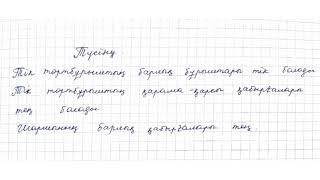 Түсіну
Тік төртбұрыштың барлық бұрыштары тік болады
Тік төртбұрыштың қарама-қарсы қабырғалары
тең болады
Шаршының барлық қабырғалары тең.